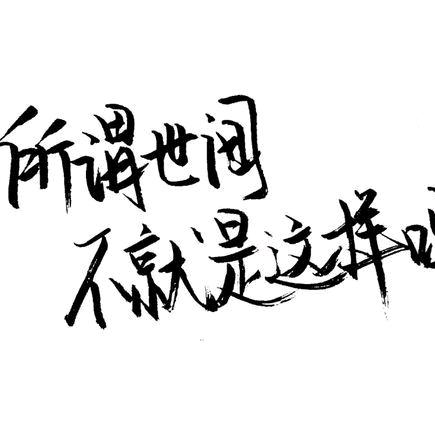 所谓世间
不就是这样